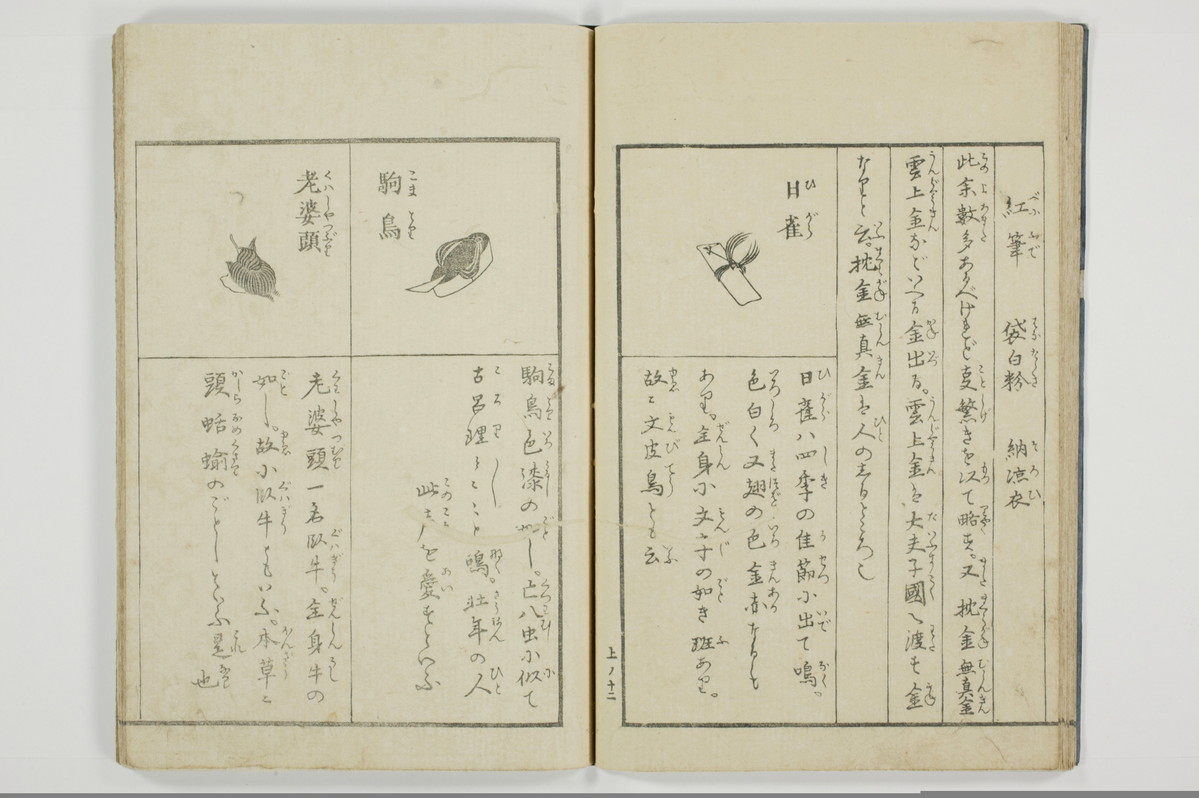 紅筆　袋白粉　納涼衣
此余数多あるべけれど事繁きを以て略す。又枕金無真金
雲上金などいへる金出る。雲上金は大夫子國へ渡す金
なりと云。枕金無真金は人のしるところ也
日雀
日雀ハ四季の佳節に出て鳴く。
色白く又翅の色金赤なるも
あり。全身に文字の如き斑あり。
故に文皮鳥とも云
上ノ十二
駒鳥
駒鳥色漆の如し。亡八虫に似て
古呂理〻〻と鳴。壮年の人
此士を愛すといふ
老婆頭
老婆頭一名臥牛。全身牛の
如し。故に臥牛ともいふ。本草に
頭蛞蝓のごとしといふ是也